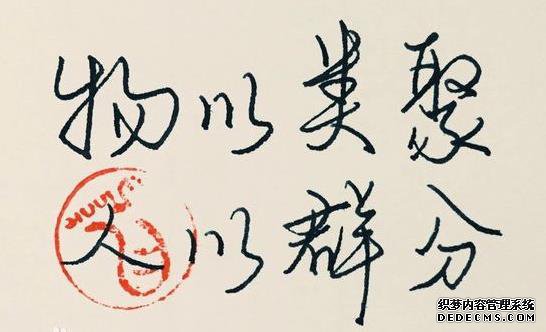 物以类聚
人以群分
织梦内容管理系统
DEDECMS.COM